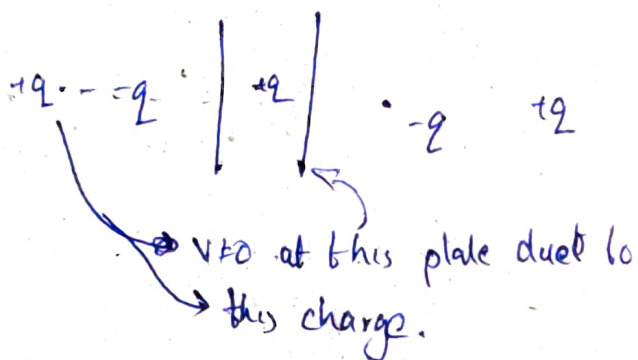 +q · - -q +q · -q +q
V≠0 at this plate due to
this charge.